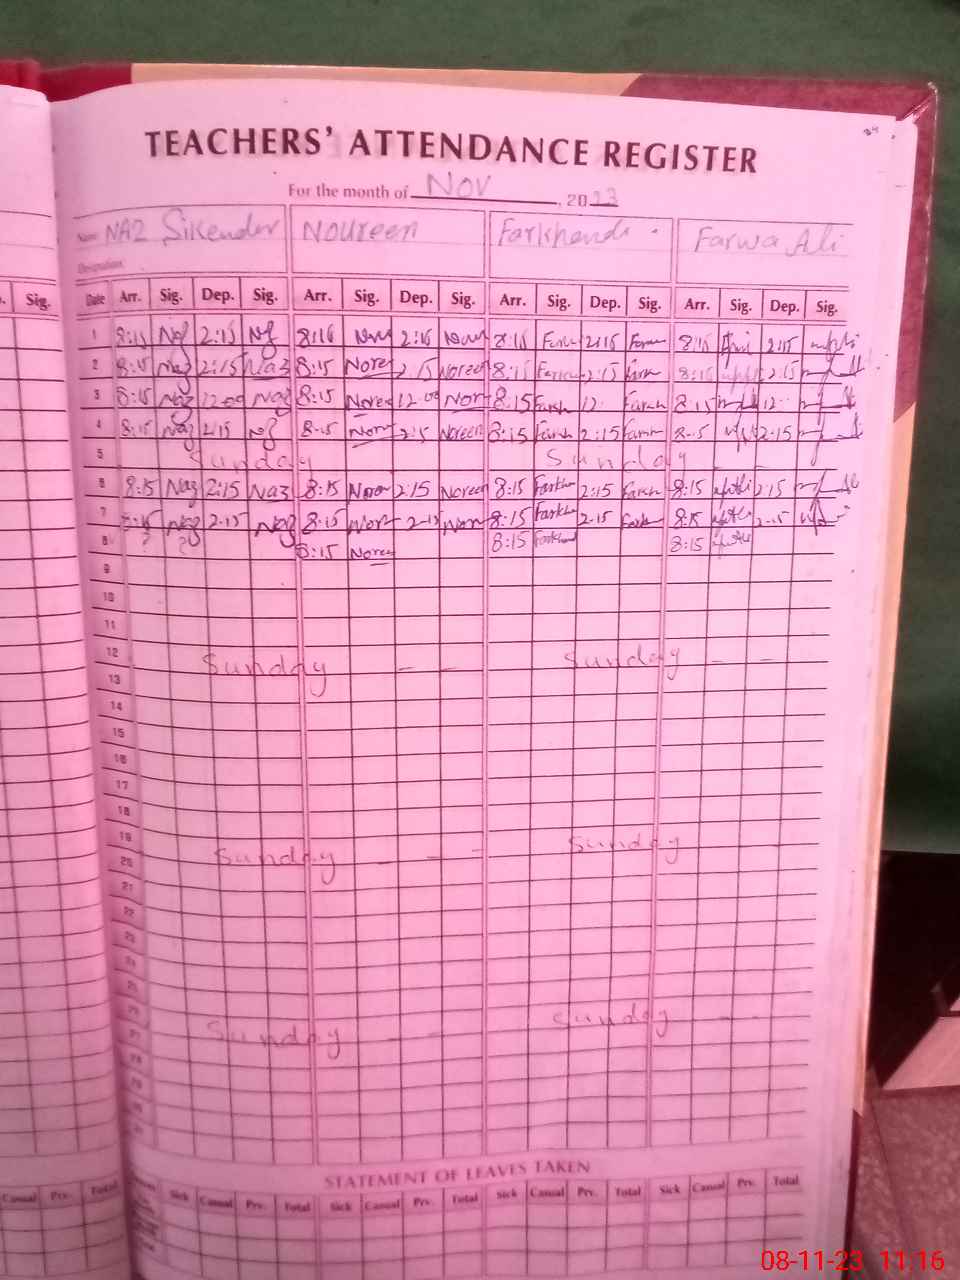 TEACHERS' ATTENDANCE REGISTER
For the month of Nov, 2023
Name NAZ Sikender Noureen Farkhanda Farwa Ali
Designation
Sig. Date Arr. Sig. Dep. Sig. Arr. Sig. Dep. Sig. Arr. Sig. Dep. Sig. Arr. Sig. Dep. Sig.
1 8:15 Naz 2:15 Naz 8:16 2:16 8:16 2:15 8:16 2:15
2 8:15 Naz 2:15 Naz 8:15 Nore 2:15 Noreen 8:15 2:15 8:15 2:15
3 8:15 Naz 12:00 Naz 8:15 Nore 12:00 Nor 8:15 Farkh 12 Farkh 8:15 12
4 8:15 Naz 2:15 8:15 Nor 2:15 Noreen 8:15 Farkh 2:15 Farkh 8:15 2:15
5 Sunday Sunday
6 8:15 Naz 2:15 Naz 8:15 Noor 2:15 Noreen 8:15 Farkh 2:15 Farkh 8:15 2:15
7 8:15 Naz 2:15 Naz 8:15 Nor 2:15 Nor 8:15 Farkha 2:15 Farkh 8:15 2:15
8 ? ? 8:15 Nore 8:15 Farkhand 8:15
9
10
11
12 Sunday Sunday
13
14
15
16
17
18
19 Sunday Sunday
20
21
22
23
24
25
26 Sunday Sunday
27
28
29
STATEMENT OF LEAVES TAKEN
Casual Prv. Total Sick Casual Prv. Total Sick Casual Prv. Total Sick Casual Prv. Total Sick Casual Prv. Total
08-11-23 11:16